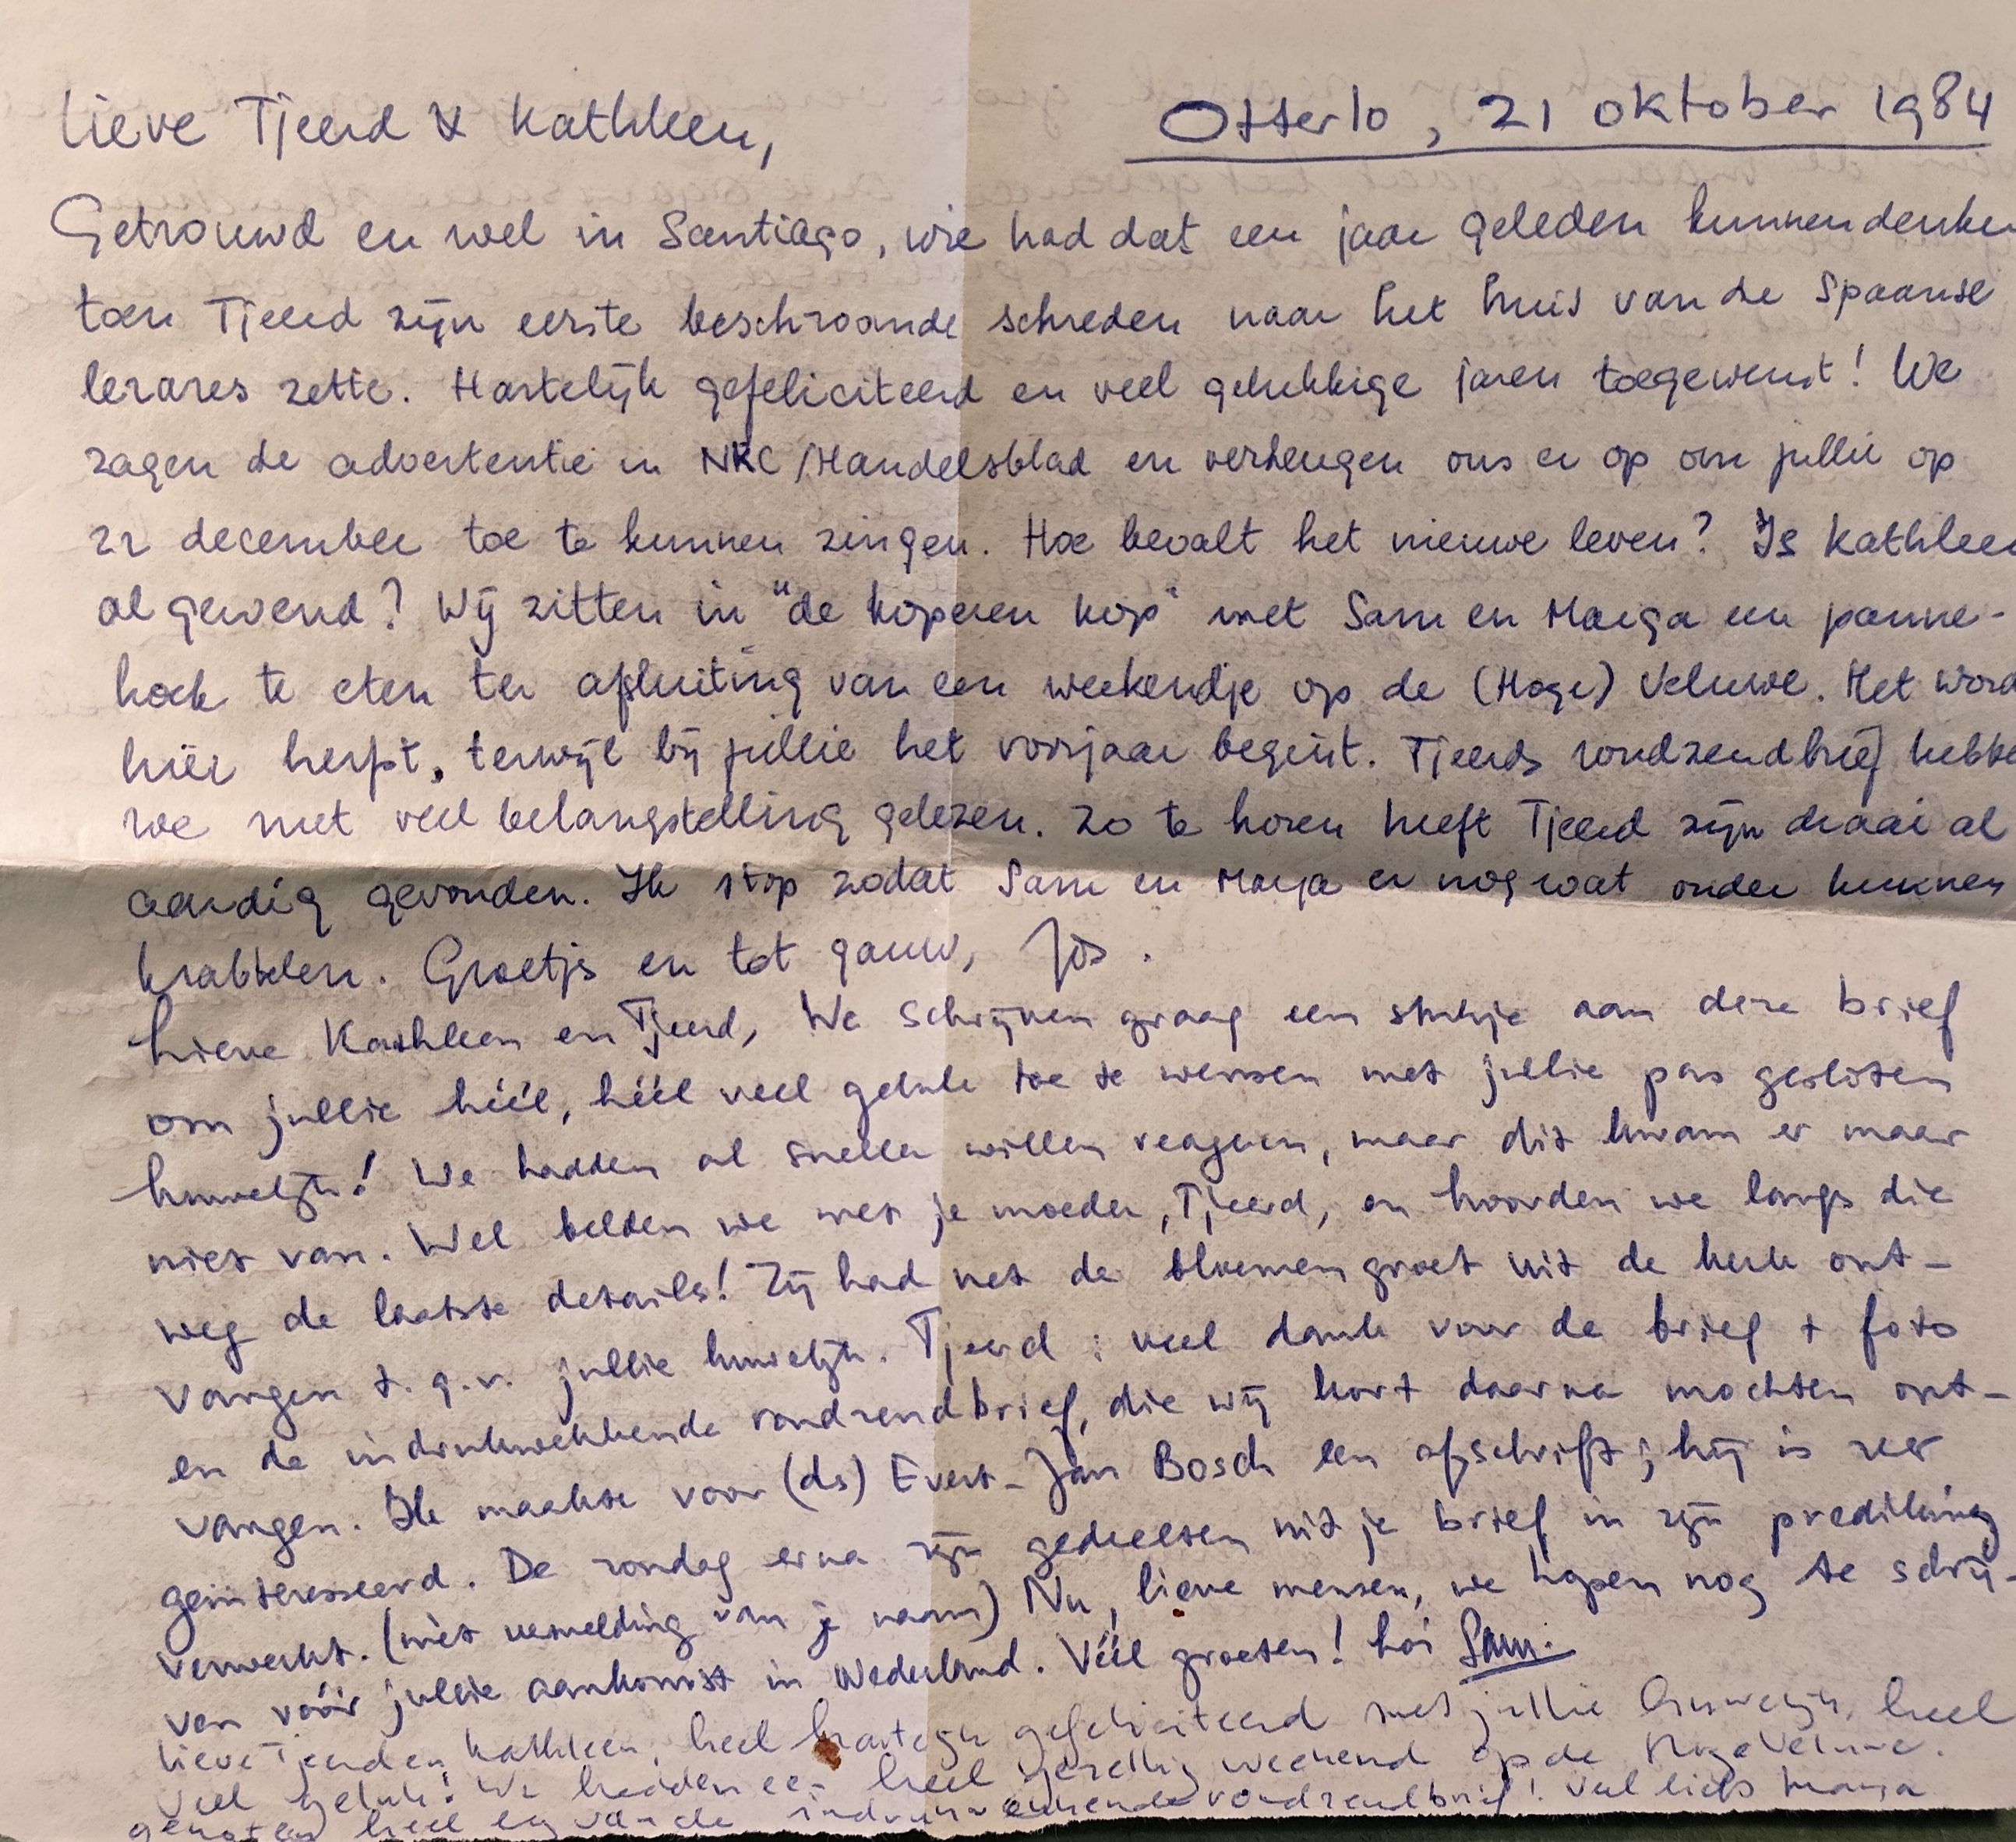 Lieve Tjeerd & Kathleen,
Otterlo, 21 oktober 1984
Getrouwd en wel in Santiago, wie had dat een jaar geleden kunnen denken
toen Tjeerd zijn eerste beschroomde schreden naar het huis van de Spaanse
lerares zette. Hartelijk gefeliciteerd en veel gelukkige jaren toegewenst! We
zagen de advertentie in NRC/Handelsblad en verheugen ons er op om jullie op
22 december toe te kunnen zingen. Hoe bevalt het nieuwe leven? Is Kathleen
al gewend? Wij zitten in "de koperen kop" met Sam en Marja een panne-
koek te eten ter afsluiting van een weekendje op de (Hoge) Veluwe. Het word
hier herfst, terwijl bij jullie het voorjaar begint. Tjeerds rondzendbrief hebbe
we met veel belangstelling gelezen. Zo te horen heeft Tjeerd zijn draai al
aardig gevonden. Ik stop zodat Sam en Marja er nog wat onder kunnen
krabbelen. Groetjes en tot gauw, Jos.
Lieve Kathleen en Tjeerd, We schrijven graag een stukje aan deze brief
om jullie héél, héél veel geluk toe te wensen met jullie pas gesloten
huwelijk! We hadden al sneller willen reageren, maar dit kwam er maar
niet van. Wel belden we met je moeder, Tjeerd, en hoorden we langs die
weg de laatste details! Zij had net de bloemengroet uit de kerk ont-
vangen t.g.v. jullie huwelijk. Tjeerd: veel dank voor de brief + foto
en de indrukwekkende rondzendbrief, die wij kort daarna mochten ont-
vangen. Ik maakte voor (ds) Evert-Jan Bosch een afschrift; hij is zeer
geïnteresseerd. De zondag erna zijn gedeelten uit je brief in zijn prediking
verwerkt. (mèt vermelding van je naam) Nu, lieve mensen, we hopen nog te schrij-
ven vóór jullie aankomst in Nederland. Véél groeten! hoi Sam.
Lieve Tjeerd en Kathleen, heel hartelijk gefeliciteerd met jullie huwelijk, heel
veel geluk! We hadden een heel gezellig weekend op de Hoge Veluwe.
genoten heel erg van de indrukwekkende rondzendbrief! Veel liefs Marja